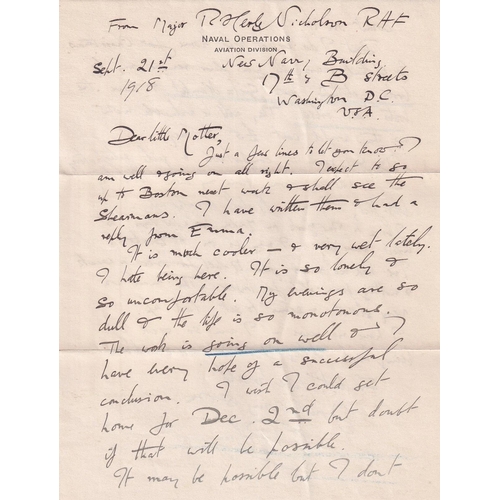 From Major R Herly Nicholson RAF
NAVAL OPERATIONS
AVIATION DIVISION
New Navy Building
Sept. 21st
17th & B streets
1918
Washington D.C.
USA.
Dear little Motter,
Just a few lines to let you know I
am well & going on all right. I expect to go
up to Boston next week & shall see the
Shearmans. I have written them & had a
reply from Emma.
It is much cooler — & very wet lately.
I hate being here. It is so lonely &
so uncomfortable. My evenings are so
dull & the life is so monotonous.
The work is going on well & I
have every hope of a successful
conclusion. I wish I could get
home for Dec. 2nd but doubt
if that will be possible.
It may be possible but I dont